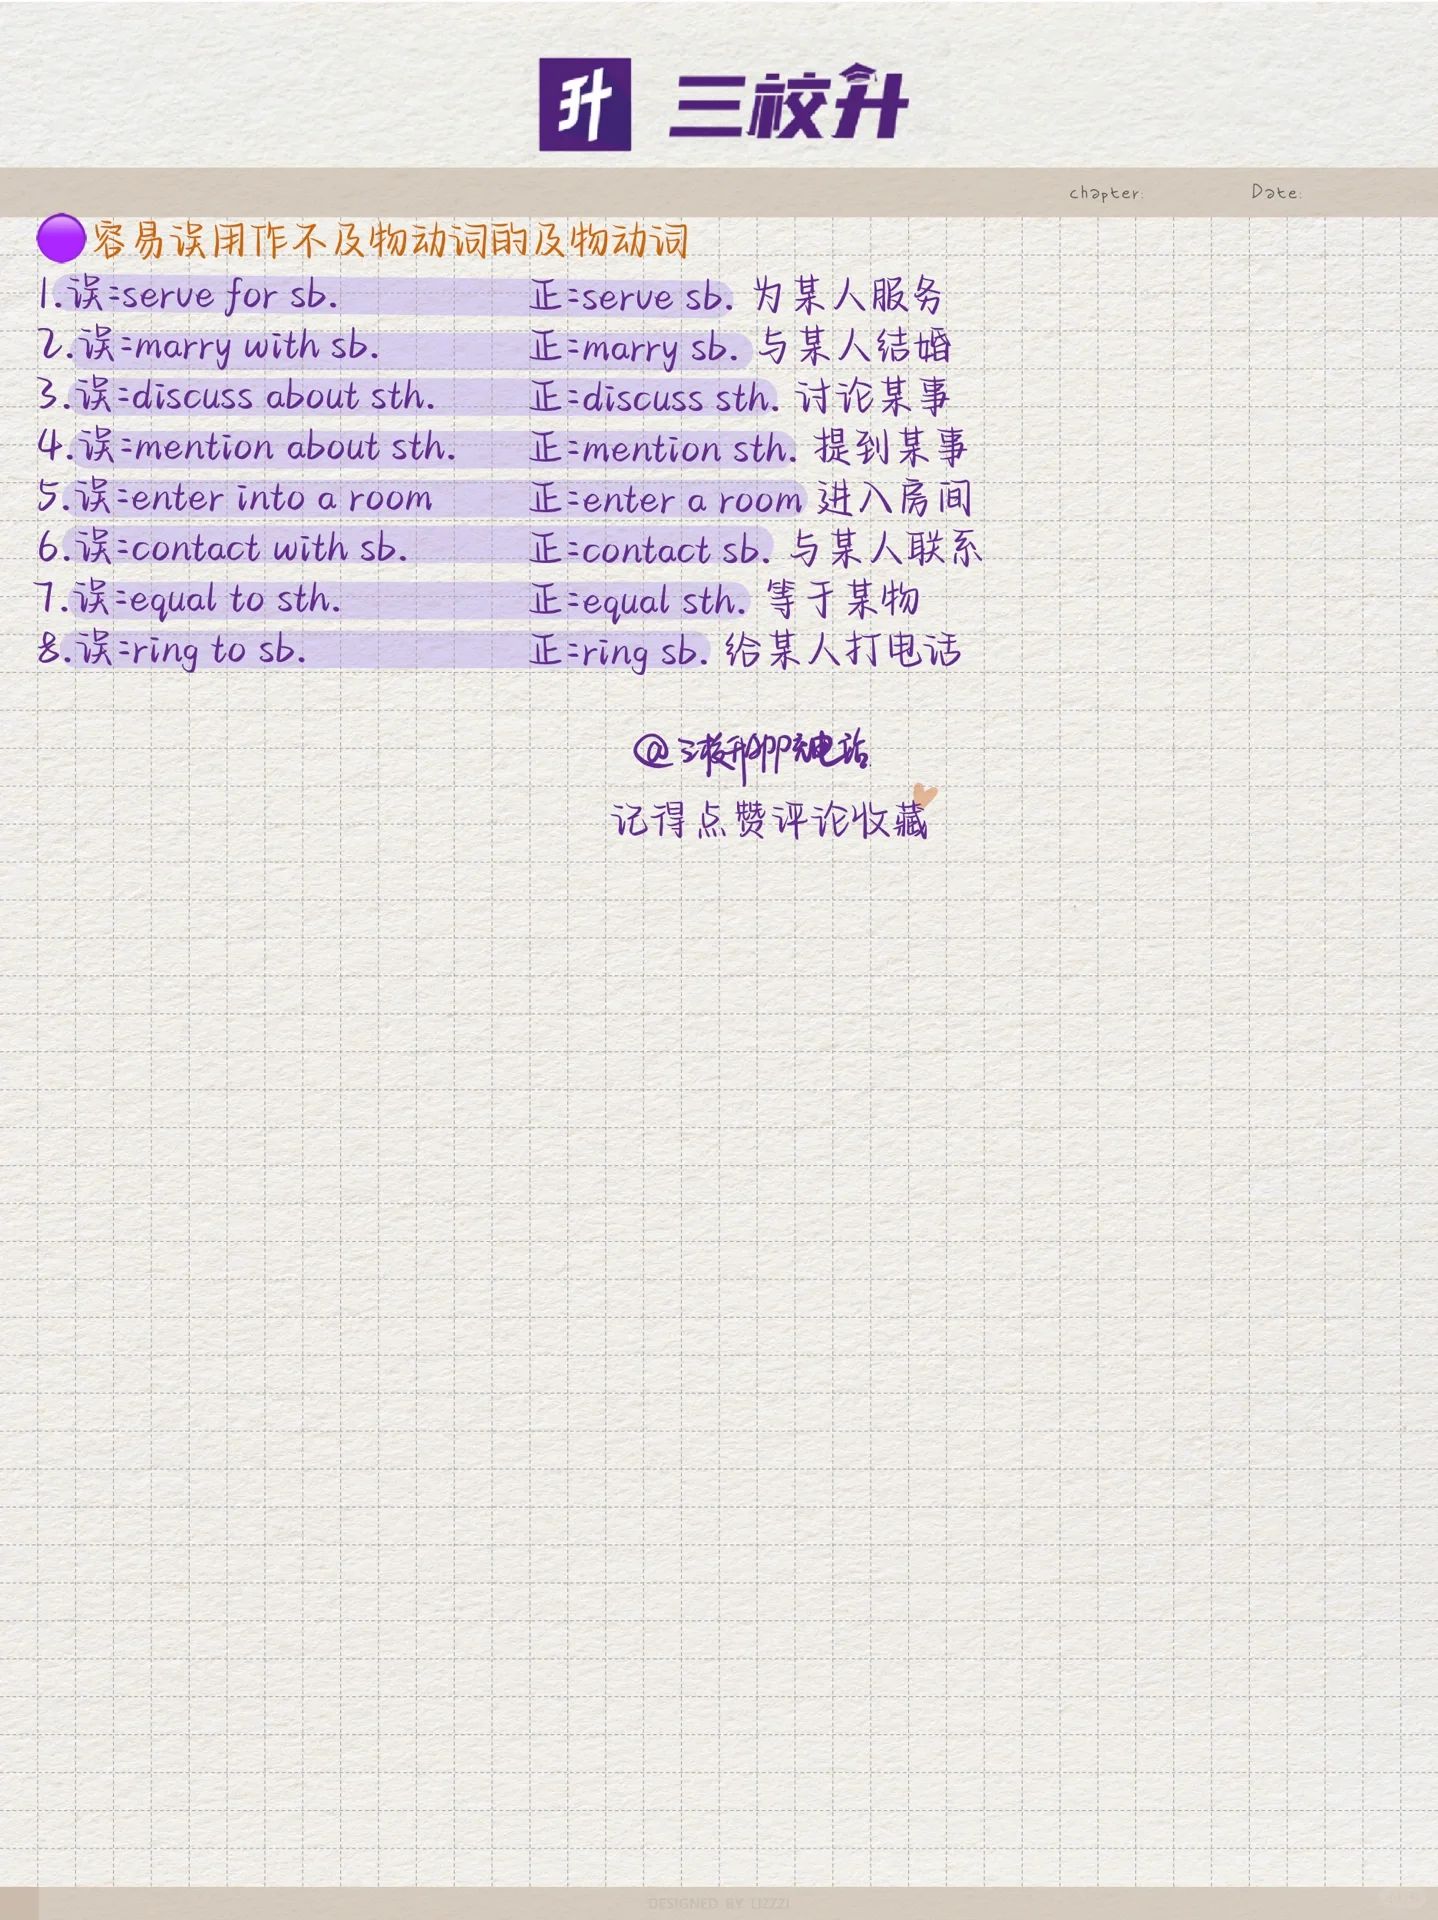 升 三校升
chapter: Date:
容易误用作不及物动词的及物动词
1.误:serve for sb. 正:serve sb. 为某人服务
2.误:marry with sb. 正:marry sb. 与某人结婚
3.误:discuss about sth. 正:discuss sth. 讨论某事
4.误:mention about sth. 正:mention sth. 提到某事
5.误:enter into a room 正:enter a room 进入房间
6.误:contact with sb. 正:contact sb. 与某人联系
7.误:equal to sth. 正:equal sth. 等于某物
8.误:ring to sb. 正:ring sb. 给某人打电话
@三校升APP充电站
记得点赞评论收藏
DESIGNED BY LIZZZI